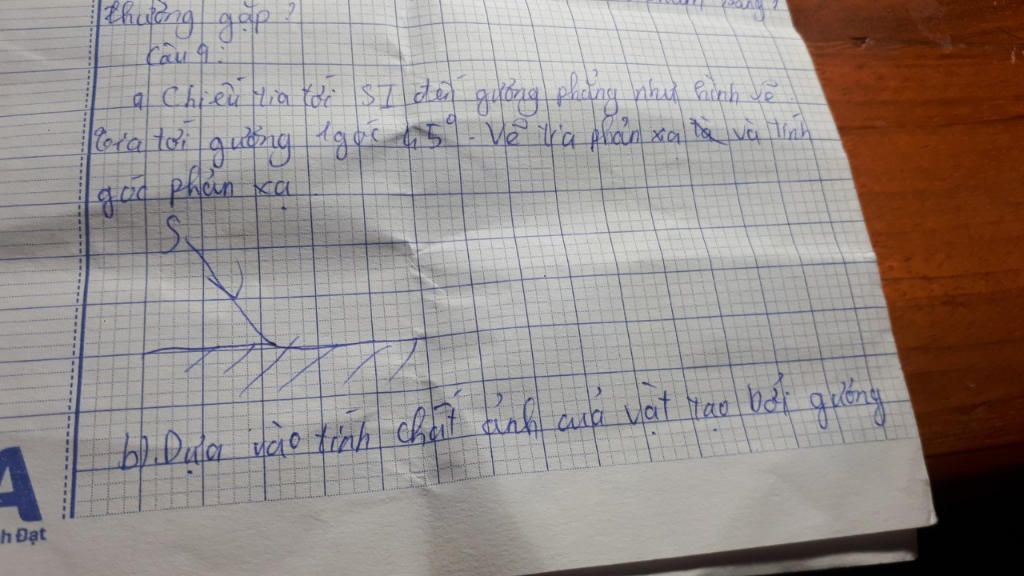 thường gặp?
Câu 9:
a Chiếu tia tới SI đến gương phẳng như hình vẽ.
tia tới gương 1 góc 45°. Vẽ tia phản xạ và tính
góc phản xạ
S
b) Dựa vào tính chất ảnh của vật tạo bởi gương
A
h Đạt